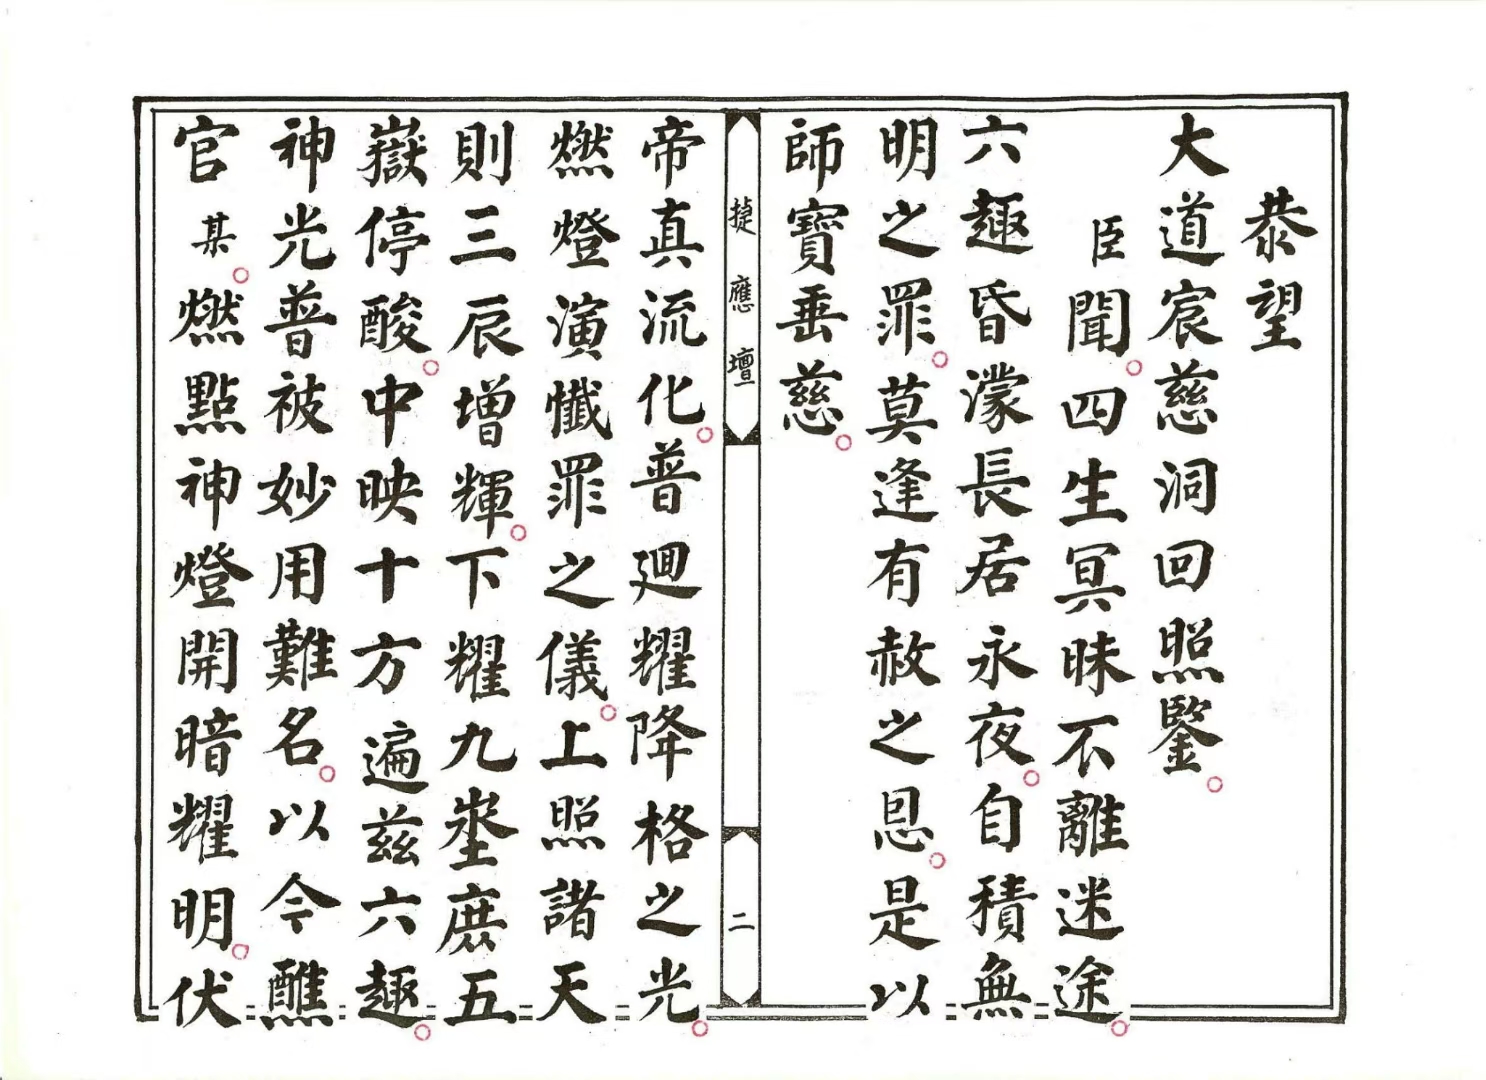 恭望
大道宸慈洞回照鑒。
臣聞。四生冥昧不離迷途。
六趣昏濛長居永夜。自積無
明之罪。莫逢有赦之恩。是以
師寶垂慈。
捷應壇
二
帝真流化。普廻耀降格之光。
燃燈演懺罪之儀。上照諸天
則三辰增輝。下耀九壘庶五
嶽停酸。中映十方遍茲六趣。
神光普被妙用難名。以今醮
官某。燃點神燈開暗耀明。伏